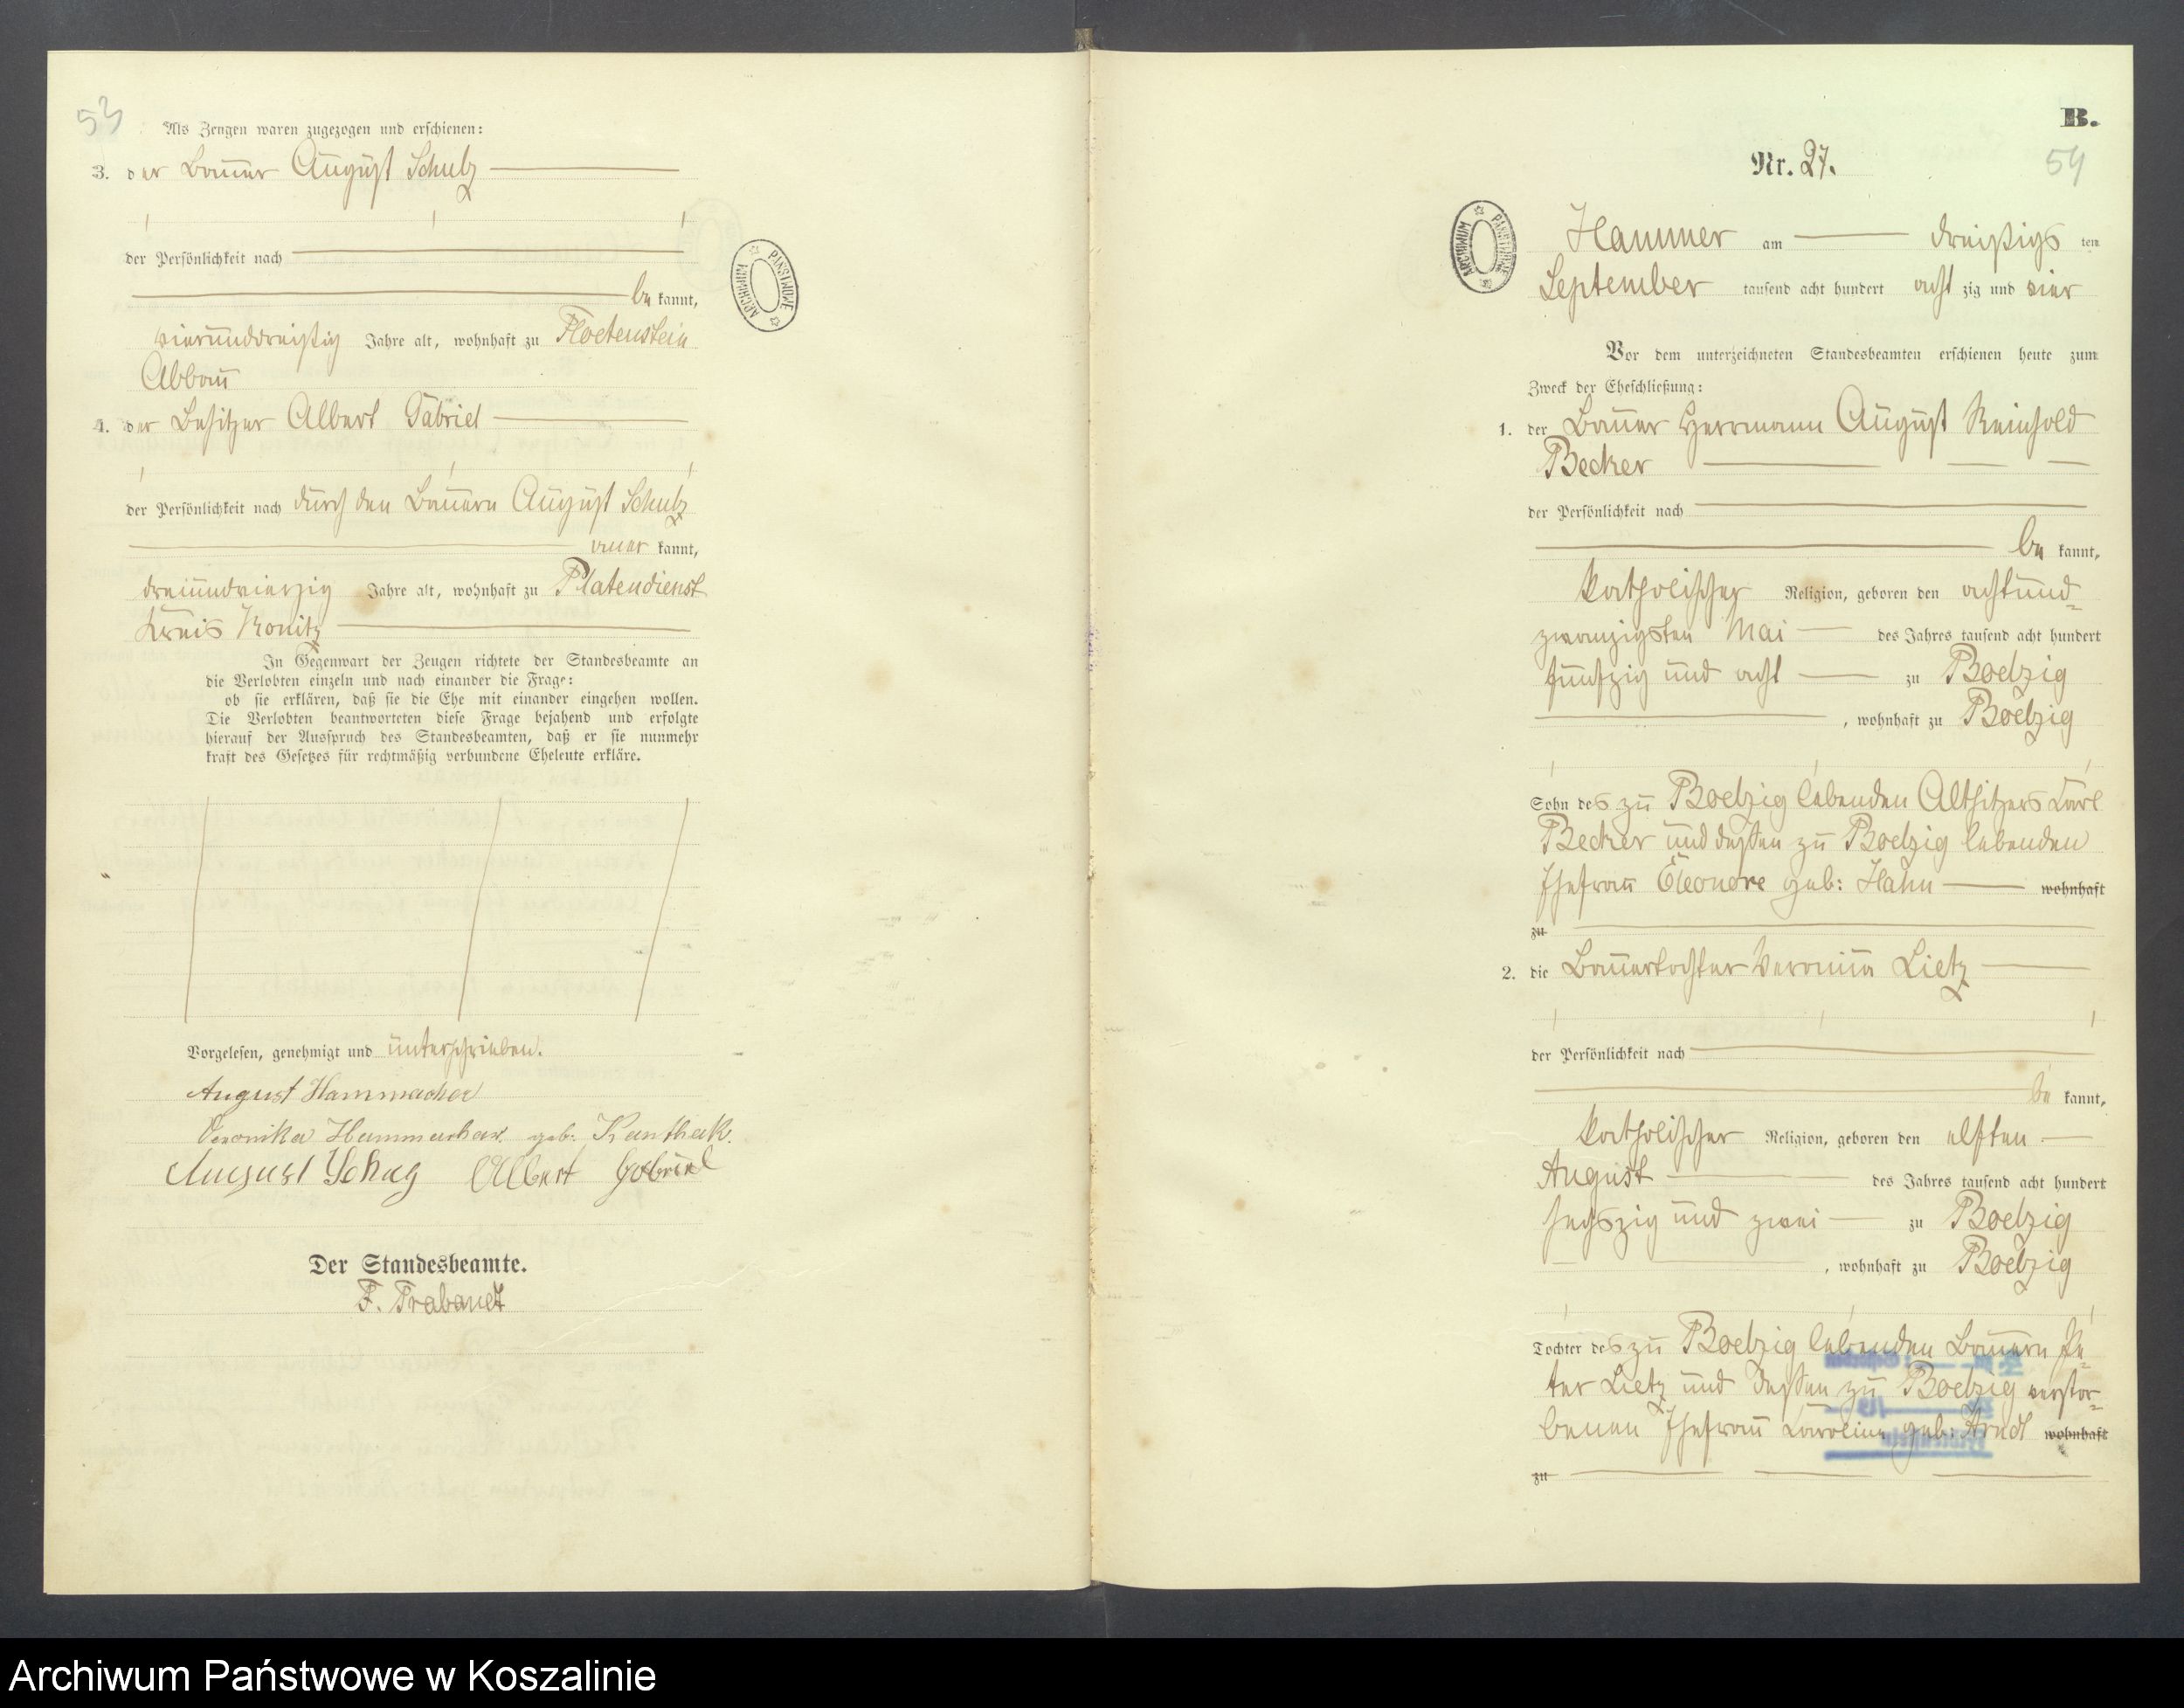 53
Als Zeugen waren zugezogen und erschienen:
3. der Bauer August Schulz
der Persönlichkeit nach
be kannt,
vierunddreißig Jahre alt, wohnhaft zu Floetenstein
Abbau
4. der Besitzer Albert Gabriel
der Persönlichkeit nach durch den Bauern August Schulz
aner kannt,
dreiundvierzig Jahre alt, wohnhaft zu Platendienst
Kreis Konitz
In Gegenwart der Zeugen richtete der Standesbeamte an
die Verlobten einzeln und nach einander die Frage:
ob sie erklären, daß sie die Ehe mit einander eingehen wollen.
Die Verlobten beantworteten diese Frage bejahend und erfolgte
hierauf der Ausspruch des Standesbeamten, daß er sie nunmehr
kraft des Gesetzes für rechtmäßig verbundene Eheleute erkläre.
Vorgelesen, genehmigt und unterschrieben.
August Hammacher
Veronika Hammacher geb: Kanthak.
August Schulz Albert Gabriel
Der Standesbeamte.
F. Trabandt
ARCHIWUM PAŃSTWOWE
B.
Nr. 27.
54
ARCHIWUM PAŃSTWOWE
Hammer am dreißigs ten
September tausend acht hundert acht zig und vier
Vor dem unterzeichneten Standesbeamten erschienen heute zum
Zweck der Eheschließung:
1. der Bauer Herrmann August Reinhold
Becker
der Persönlichkeit nach
be kannt,
katholischer Religion, geboren den achtund=
zwanzigsten Mai des Jahres tausend acht hundert
fünfzig und acht zu Boelzig
, wohnhaft zu Boelzig
Sohn des zu Boelzig lebenden Altsitzers Karl
Becker und dessen zu Boelzig lebenden
Ehefrau Eleonore geb: Hahn wohnhaft
zu
2. die Bauertochter Lietz
der Persönlichkeit nach
be kannt,
katholischer Religion, geboren den elften
August des Jahres tausend acht hundert
sechszig und zwei zu Boelzig
, wohnhaft zu Boelzig
Tochter des zu Boelzig lebenden Bauern Pe=
ter Lietz und dessen zu Boelzig verstor=
benen Ehefrau Karoline geb: Arndt wohnhaft
zu
Archiwum Państwowe w Koszalinie